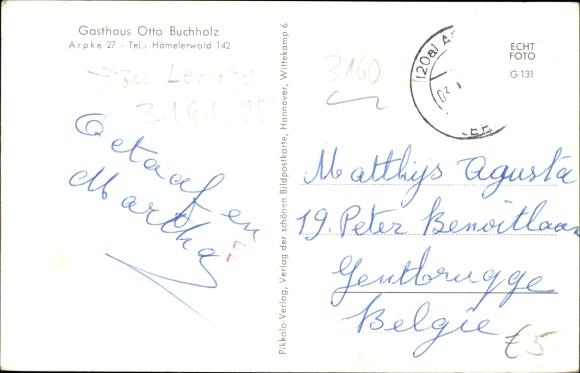 Gasthaus Otto Buchholz
Arpke 27 - Tel.: Hämelerwald 142
→ zu Lehrte
3161
Octaaf en
Martha
Pikkolo-Verlag, Verlag der schönen Bildpostkarte, Hannover, Wittekamp 6
3160
(20a) A
ECHT
FOTO
G 131
Matthijs Agusta
19. Peter Benoitlaan
Gentbrugge
Belgie
€5